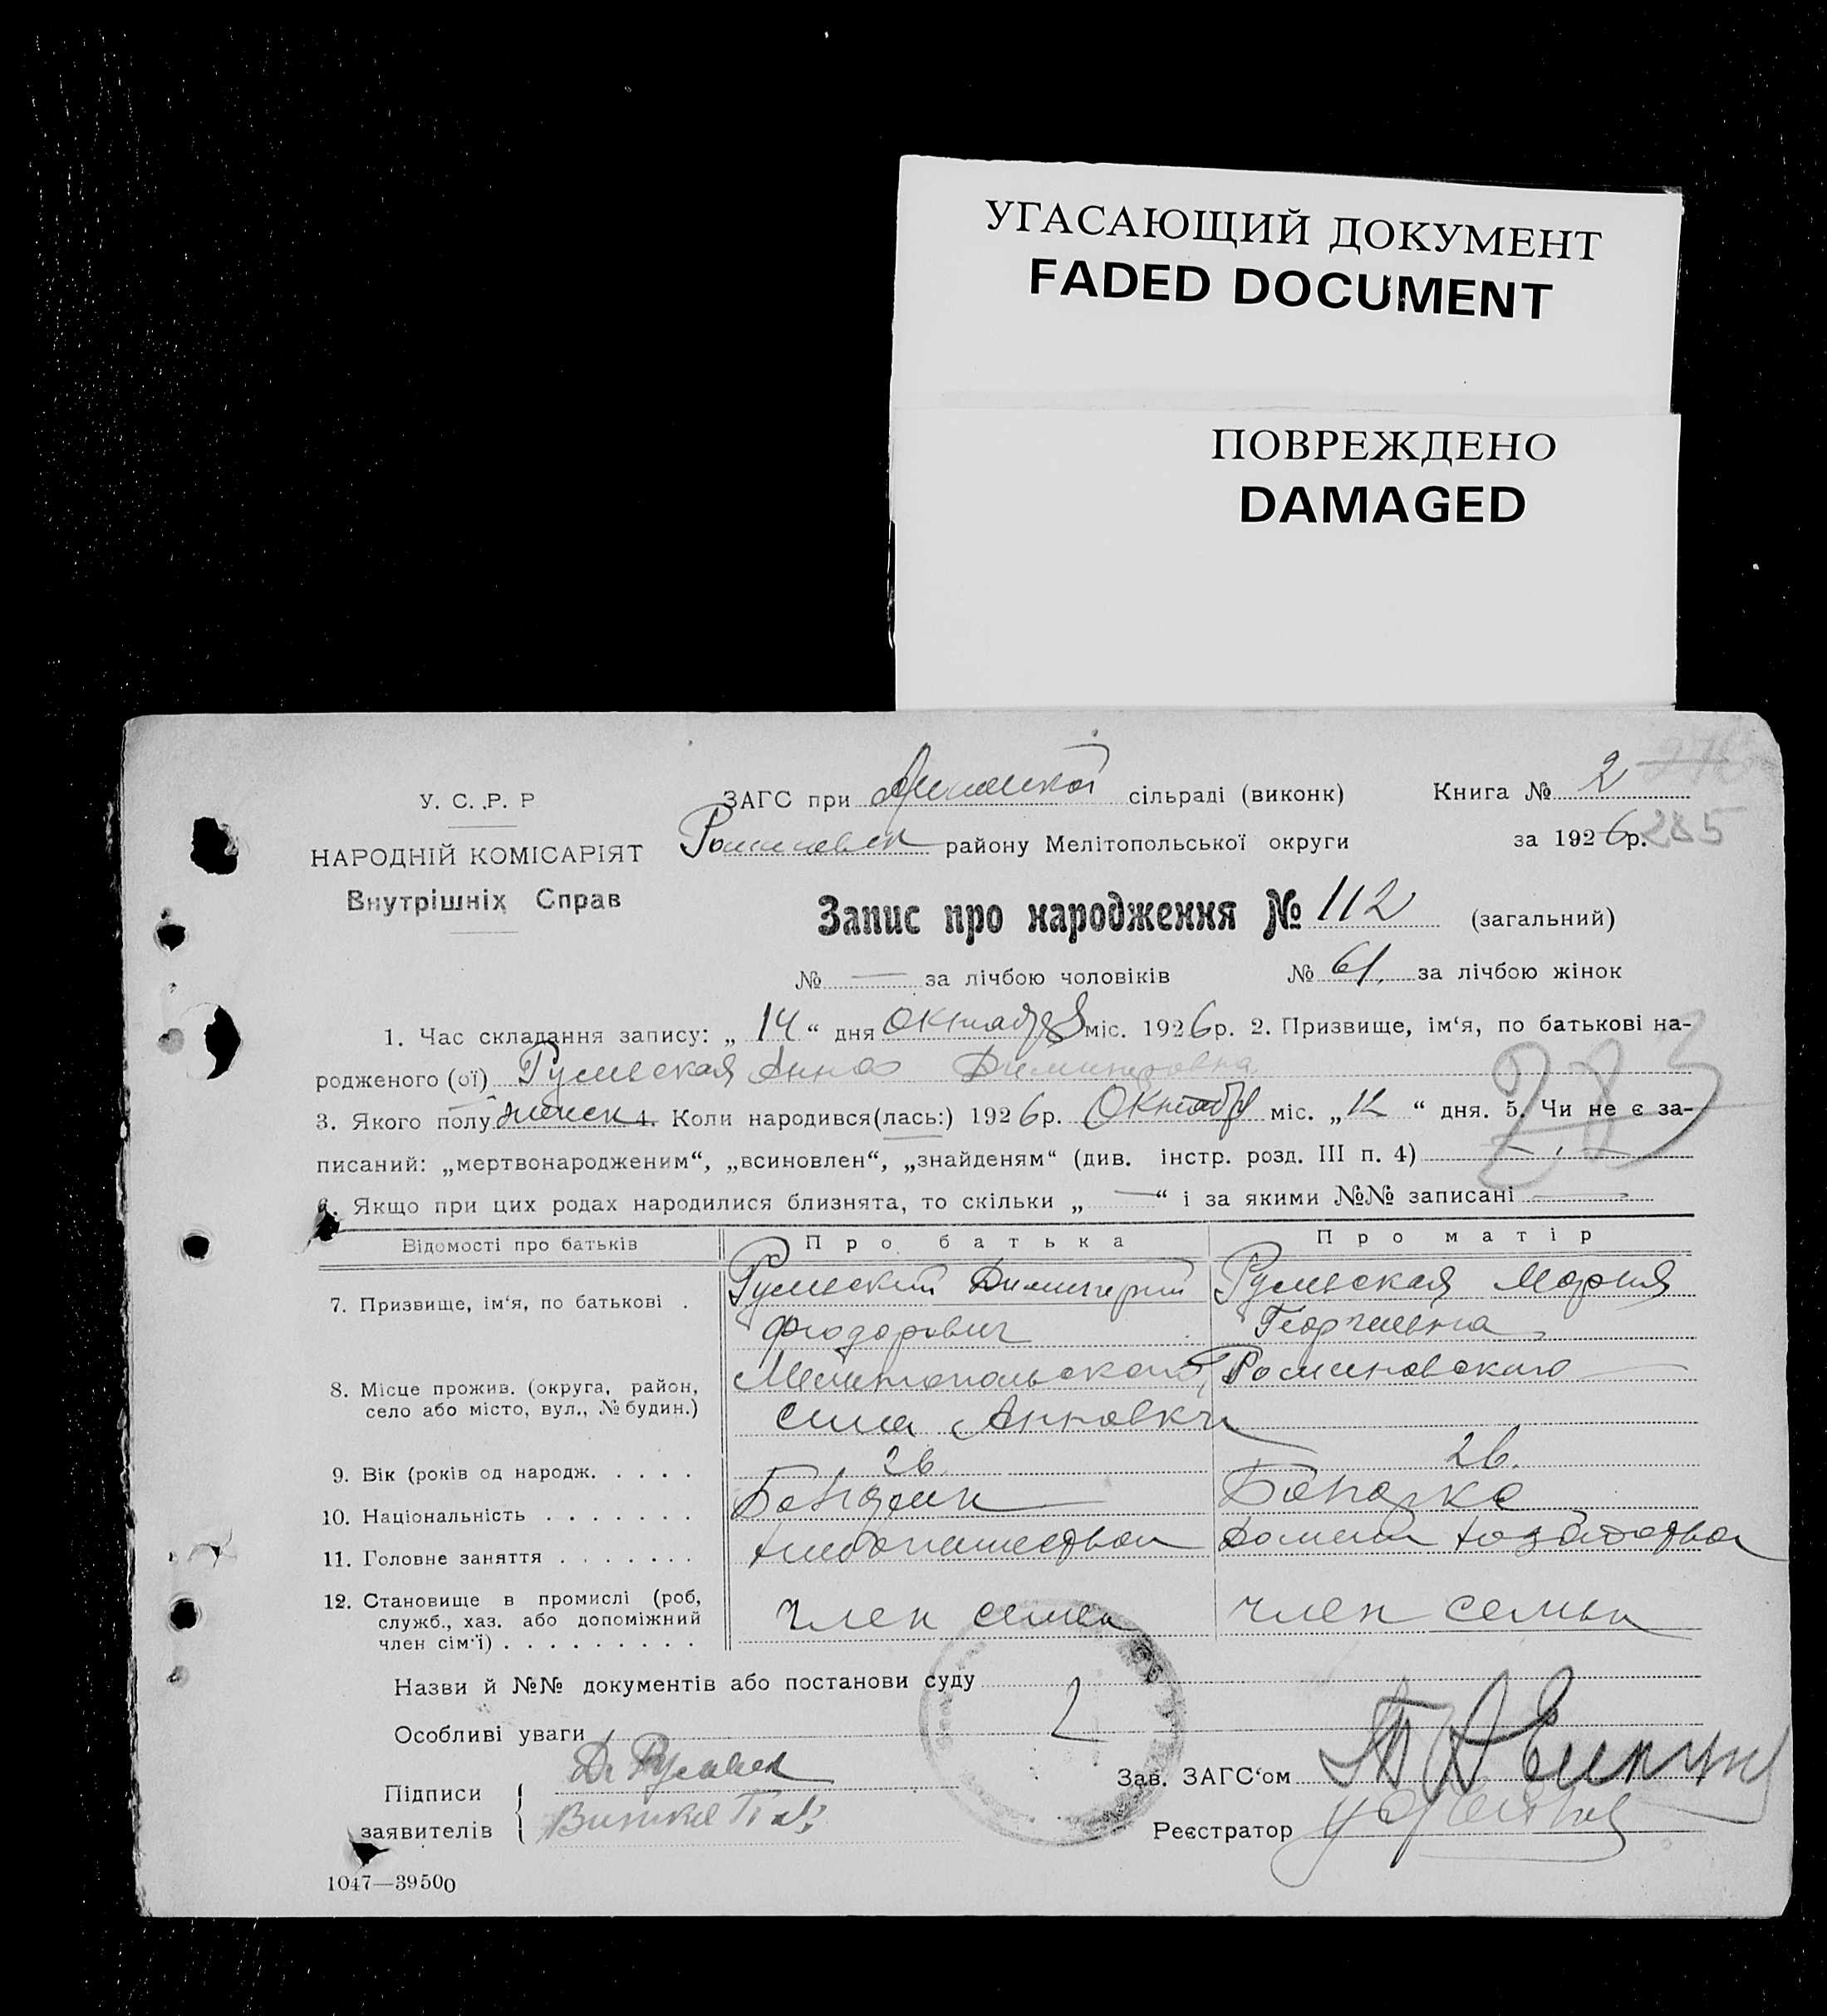 УГАСАЮЩИЙ ДОКУМЕНТ
FADED DOCUMENT
ПОВРЕЖДЕНО
DAMAGED
У. С. Р. Р
НАРОДНІЙ КОМІСАРІЯТ
Внутрішніх Справ
ЗАГС при сільраді (виконк)
району Мелітопольської округи
Книга № 2
за 1926 р. 285
Запис про народження № 112 (загальний)
№ — за лічбою чоловіків № 61. за лічбою жінок
1. Час складання запису: „ 14 “ дня Октября міс. 1926 р. 2. Призвище, ім‘я, по батькові на-
родженого (ої) Анна Димитровна
3. Якого полу женск 4. Коли народився(лась:) 1926 р. Октября міс. „ 12 “ дня. 5. Чи не є за-
писаний: „мертвонародженим“, „всиновлен“, „знайденям“ (див. інстр. розд. III п. 4)
283
6. Якщо при цих родах народилися близнята, то скільки „ — “ і за якими №№ записані —
Відомості про батьків Про батька Про матір
7. Призвище, ім‘я, по батькові . Димитрий Мария
Фіодорович Георгиевна
8. Місце прожив. (округа, район, Мелитопольской, Романовского
село або місто, вул., № будин.) села Анновки
9. Вік (років од народж. . . . . 26 26.
10. Національність . . . . . . . Болгарка
11. Головне заняття . . . . . . . хлебопашество
12. Становище в промислі (роб,
служб., хаз. або допоміжний член семьи член семьи
член сім‘ї) . . . . . . . . . .
Назви й №№ документів або постанови суду
Особливі уваги
Підписи
заявителів
Зав. ЗАГС‘ом
Реєстратор
1047—39500